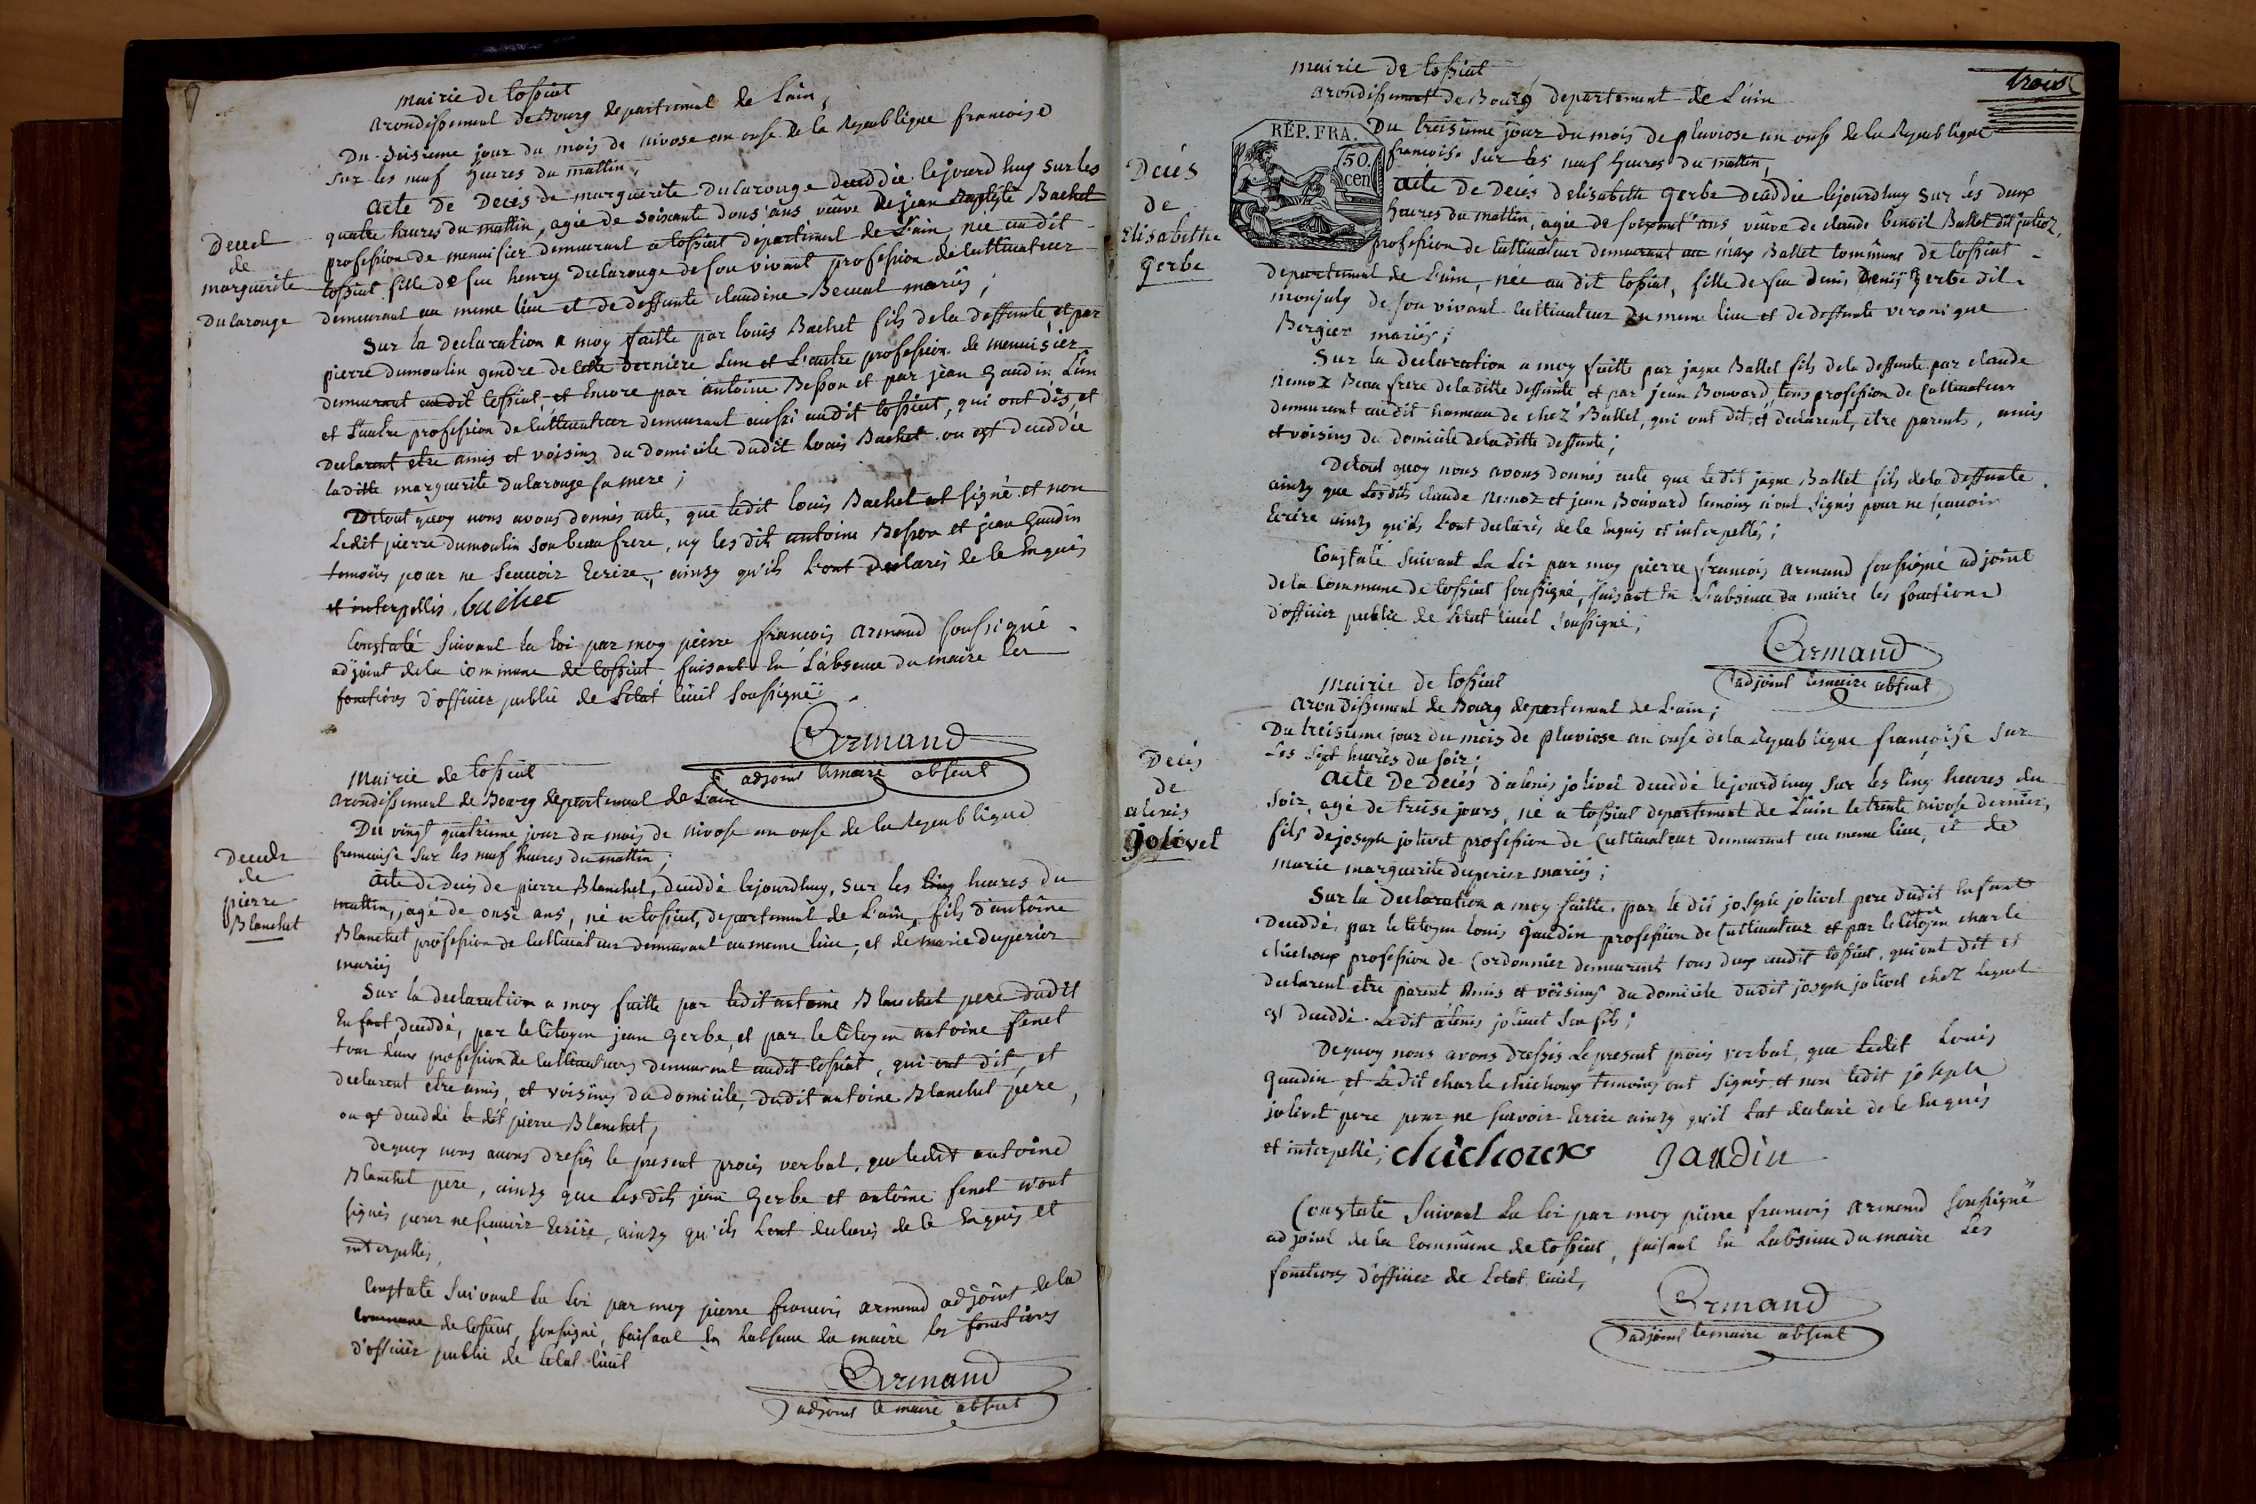 mairie de tossiat
arondissement de Bourg departement de L'ain,
Du seisieme jour du mois de nivose an onse de la Republique francoise
sur les neuf heures du mattin,
Acte de Deces de marguerite Dularouge deceddée lejourd huy sur les
quatre heures du mattin, agée de soixante dous ans veuve de jean Baptiste Bachet
profession de menuisier demeurant a tossiat departement de L'ain, née au dit
tossiat fille de feu henry Dularouge de son vivant profession de cultivateur
demeurant au meme lieu et de deffunte claudine Becuat mariés,
Decced
de
marguerite
Dularouge
Sur la declaration a moy faitte par louis Bachet fils de la deffunte, et par
pierre dumoulin gendre de cette derniere Lun et L'autre profession de menuisier
demeurant audit tossiat, et Encore par antoine Besson et par jean Gaudin L'un
et L'autre profession de cultivateur demeurant aussi audit tossiat, qui ont dis, et
declarent etre amis et voisins du domicile dudit louis Bachet ou est deceddée
laditte marguerite dularouge sa mere;
De tout quoy nous avons donnés acte, que ledit louis Bachet at signé et non
Ledit pierre dumoulin son beau frere, ny les dits antoine Besson et jean Gaudin
temoins pour ne scavoir Ecrire, ainsy qu'ils L'ont declarés de le Enquis
et interpellis. bachet
Constaté suivant la loi par moy pierre francois armand soussigné
adjoint de la commune de tossiat faisant en L'absence du maire les
fonctions d'officier public de L'etat civil soussigné
Armand
adjoint lemaire absent
Mairie de tossiat
arondissement de Bourg departement de L'ain
Du vingt quatrieme jour du mois de nivose an onse de la Republique
francoise sur les neuf heures du mattin,
Decedz
de
pierre
Blanchet
Acte de deces de pierre Blanchet, deceddé lejourdhuy, sur les cinq heures du
mattin, agé de onse ans, né a tossiat, departement de L'ain, fils d'antoine
Blanchet profession de cultivateur demeurant au meme lieu, et de marie Duperier
mariés
Sur la declaration a moy faitte par ledit antoine Blanchet pere dudit
Enfant deceddé, par le citoyen jean Gerbe, et par le citoyen antoine fenet
tous deux profession de cultivateurs demeurant audit tossiat, qui ont dit, et
declarent etre amis, et voisins du domicile, dudit antoine Blanchet pere,
ou est deceddé le dit pierre Blanchet,
De quoy nous avons dressés le present procés verbal, que ledit antoine
Blanchet pere, ainsy que les dits jean Gerbe et antoine fenet n'ont
signés pour ne scavoir Ecrire, ainsy qu'ils L'ont declarés de le Enquis et
interpellés,
Constaté suivant la Loi par moy pierre francois armand adjoint de la
commune de tossiat, soussigné, faisant En L'absence du maire les fonctions
d'officier public de L'etat civil
Armand
adjoint le maire absent
mairie de tossiat
arondissement de Bourg departement de L'ain
trois
RÉP. FRA.
50.
cen
Du treisieme jour du mois de pluviose an onse de la Republique
francoise sur les neuf heures du mattin,
Deces
de
Elisabethe
Gerbe
Acte de deces d'elisabethe Gerbe deceddée lejourdhuy sur les deux
heures du mattin, agée de soixant ans veuve de claude benoit Ballet dit
profession de cultivateur demeurant au max Ballet commune de tossiat
departement de L'ain, née au dit tossiat, fille de feu denis Gerbe dit
monjuly de son vivant cultivateur du meme lieu et de deffunte veronique
Bergier mariés;
Sur la declaration a moy faitte par jaque Ballet fils de la deffunte par claude
nemoz Beau frere de la ditte deffunte et par jean Bouvard, tous profession de cultivateur
demeurant audit hameau de chez Ballet, qui ont dit, et declarent, etre parents, amis
et voisins du domicile de la ditte deffunte;
De tout quoy nous avons donnés acte que le dit jaque Ballet fils de la deffunte
ainsy que Lesdits claude nemoz et jean Bouvard temoins n'ont signés pour ne scavoir
Ecrire ainsy qu'ils L'ont declarés de le Enquis et interpellés;
Constaté suivant La Loi par moy pierre francois armand soussigné adjoint
de la Commune de tossiat soussigné, faisant En L'absence du maire les fonctions
d'officier public de L'etat civil soussigné;
Armand
adjoint lemaire absent
Mairie de tossiat
arondissement de Bourg departement de L'ain;
Du treisieme jour du mois de pluviose an onse de la Republique françoise sur
Les sept heures du soir;
Deces
de
alexis
Jolivet
Acte de deces d'alexis jolivet deceddé lejourdhuy sur les cinq heures du
soir, agé de treise jours, né a tossiat departement de L'ain le trente nivose dernier,
fils de joseph jolivet profession de Cultivateur demeurant au meme lieu, et de
marie marguerite duperier mariés;
Sur la declaration a moy faitte, par le dit joseph jolivet pere dudit Enfant
Deceddé, par le citoyen louis Gaudin profession de Cultivateur et par le citoyen charle
chichoux profession de Cordonnier demeurant tous deux audit tossiat, qui ont dit et
declarent etre parent Amis et voisins du domicile dudit joseph jolivet chez lequel
est deceddé Ledit alexis jolivet son fils;
De quoy nous avons dressés Le present procés verbal, que ledit Louis
Gaudin et Le dit charle chichoux temoins ont signés et non ledit joseph
jolivet pere pour ne scavoir Ecrire ainsy qu'il Lat declaré de le Enquis
et interpellé; chichoux Jaudin
Constaté suivant La Loi par moy pierre francois armand soussigné
adjoint de la Commune de tossiat, faisant En L'absence du maire Les
fonctions d'officier de L'etat civil,
Armand
adjoint lemaire absent